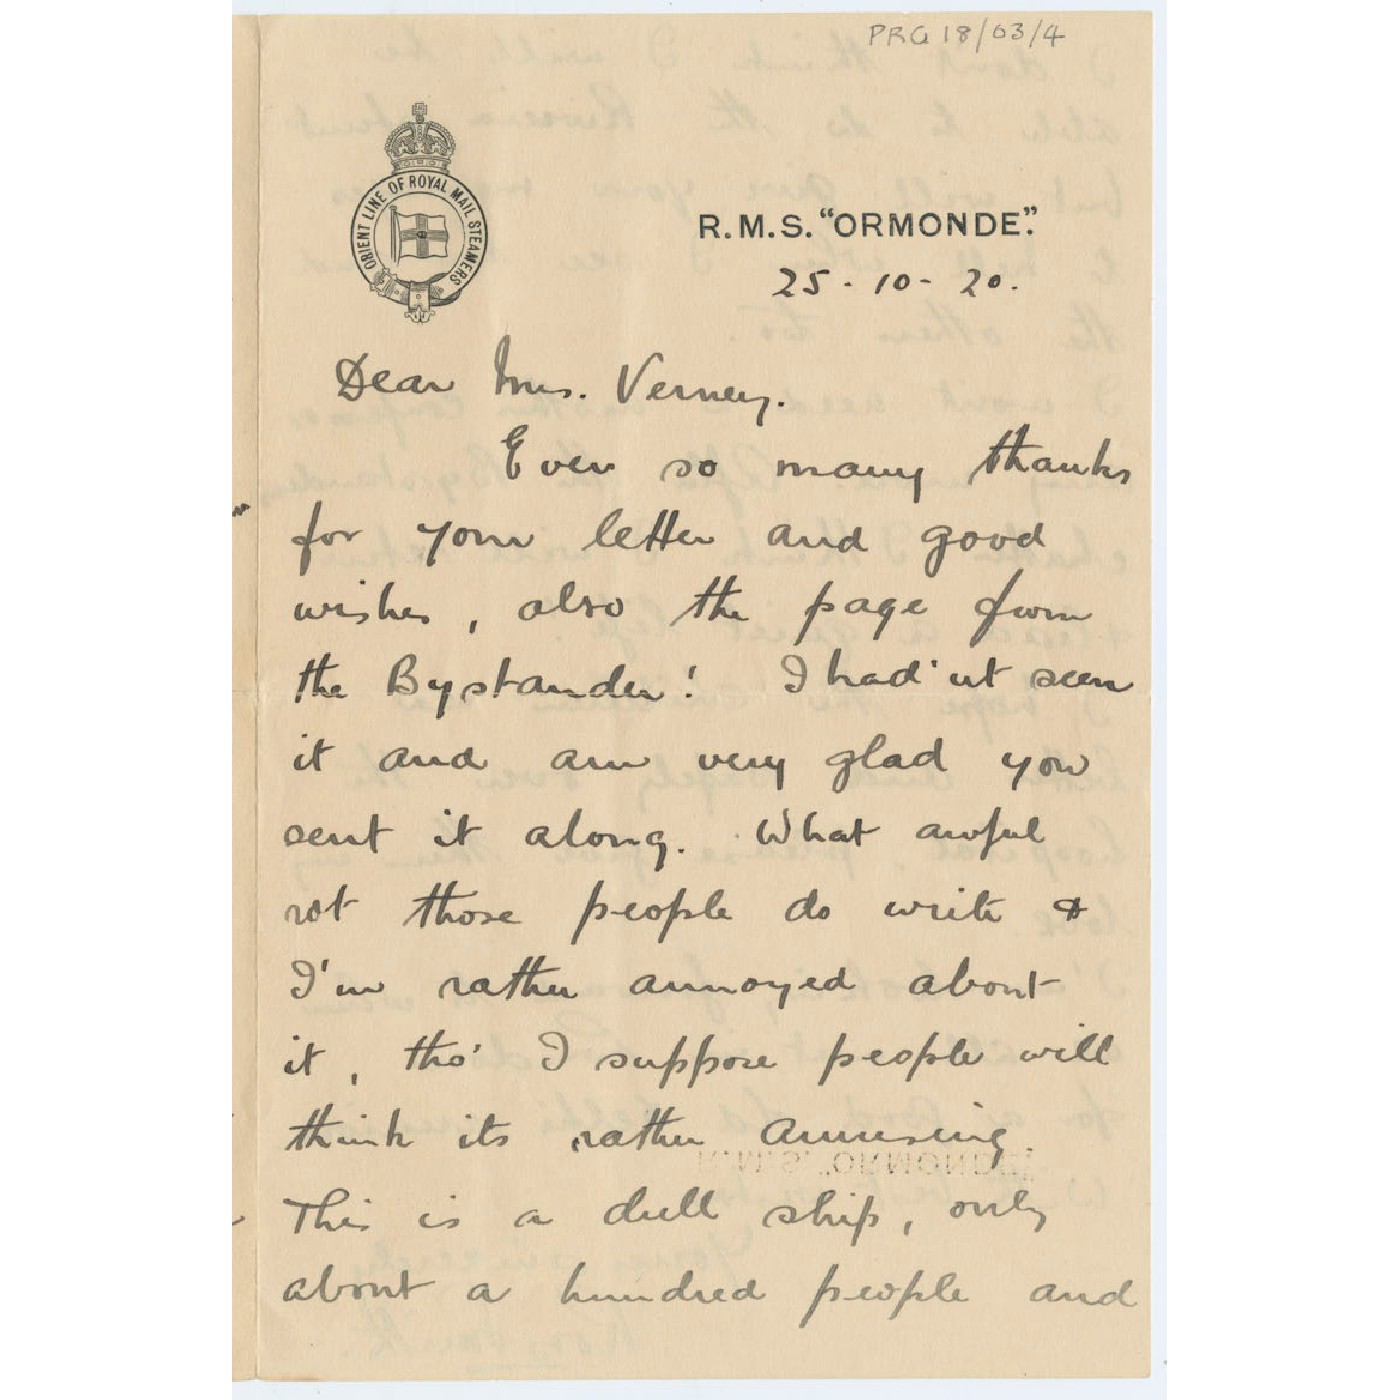 PRG 18/03/4
ORIENT LINE OF ROYAL MAIL STEAMERS
R.M.S. "ORMONDE".
25 - 10 - 20.
Dear Mrs. Verney.
Ever so many thanks
for your letter and good
wishes, also the page from
the Bystander! I had'nt seen
it and am very glad you
sent it along. What awful
rot those people do write &
I'm rather annoyed about
it, tho' I suppose people will
think its rather amusing.
This is a dull ship, only
about a hundred people and